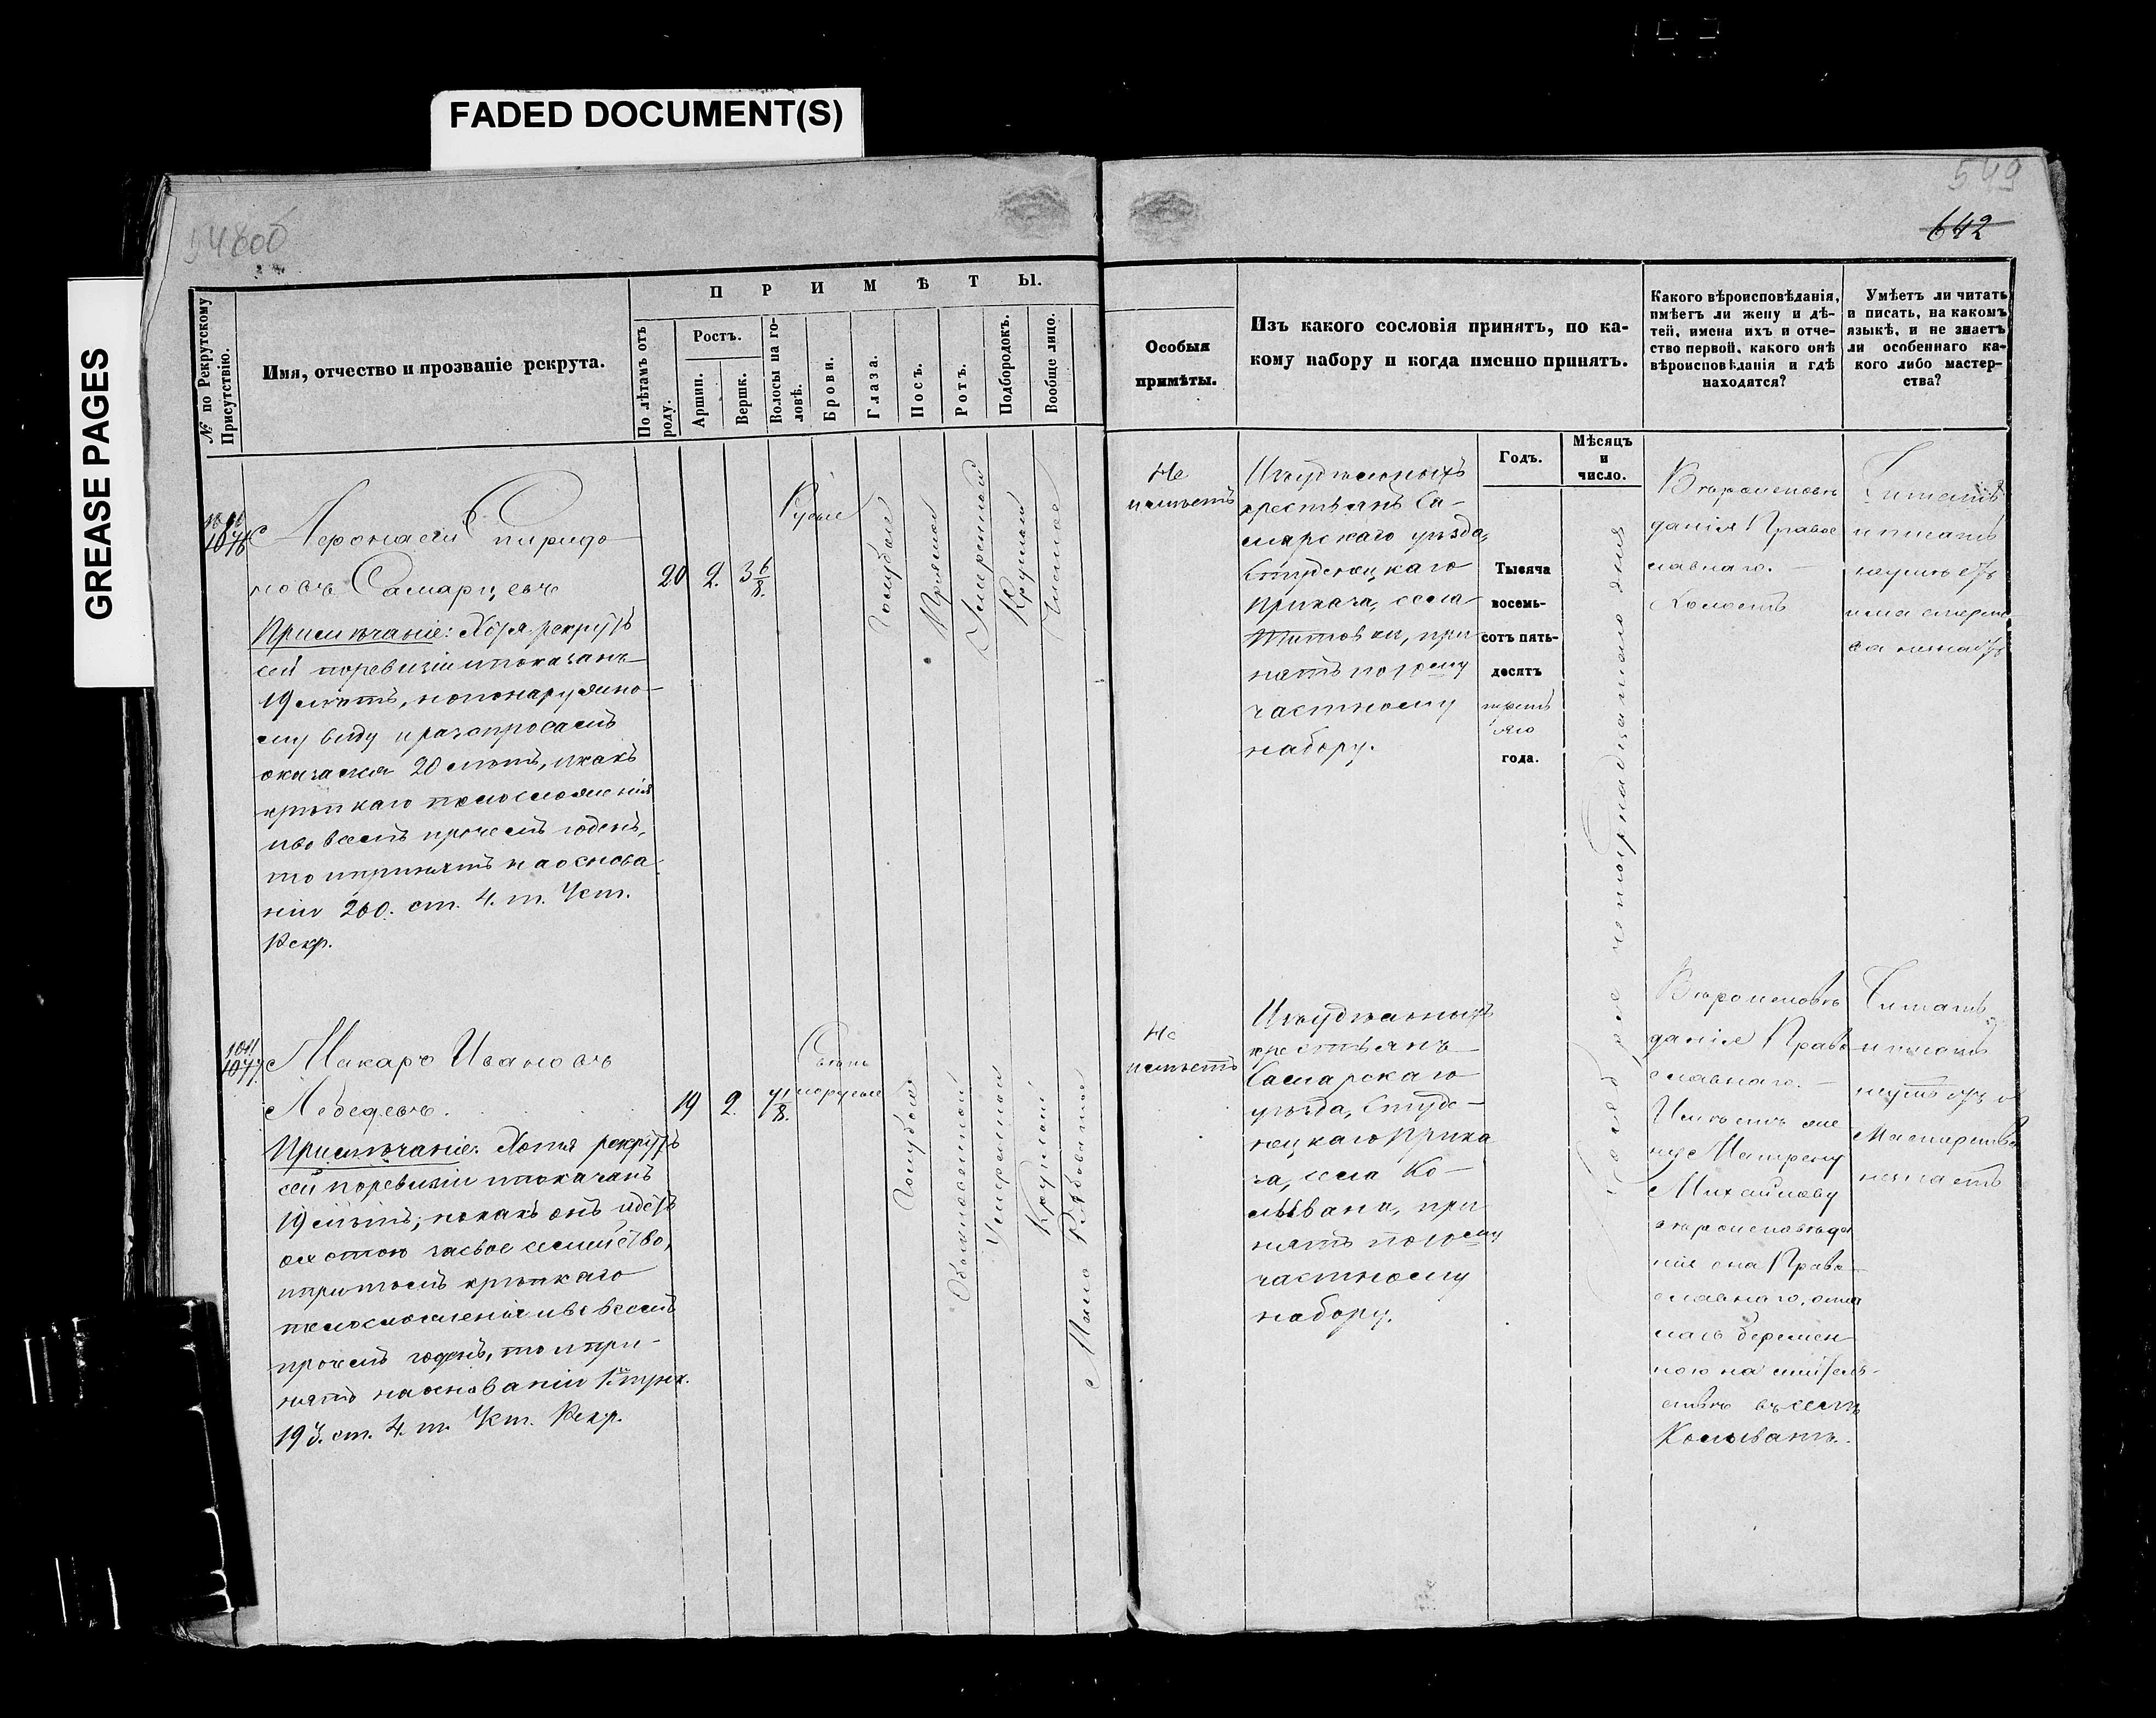 FADED DOCUMENT(S)
GREASE PAGES
548об
549
642
№ по Рекрутскому Присутствію.
Имя, отчество и прозваніе рекрута.
ПРИМѢТЫ.
По лѣтамъ отъ роду.
Ростъ.
Аршин.
Вершк.
Волосы на головѣ.
Брови.
Глаза.
Носъ.
Ротъ.
Подбородокъ.
Вообще лицо.
Особыя
примѣты.
Изъ какого сословія принятъ, по ка-
кому набору и когда именно принятъ.
Годъ.
Мѣсяцъ
и
число.
Какого вѣроисповѣданія,
имѣетъ ли жену и дѣ-
тей, имена ихъ и отче-
ство первой, какого онѣ
вѣроисповѣданія и гдѣ
находятся?
Умѣетъ ли читать
и писать, на какомъ
языкѣ, и не знаетъ
ли особеннаго ка-
кого либо мастер-
ства?
Спиридо-
новъ Самарцевъ
Примѣчаніе: Хотя рекрутъ
сей по ревизіи и показанъ
19 лѣтъ, но по наружно-
му виду и разспросамъ
оказался 20 лѣтъ, и какъ
крѣпкаго тѣлосложенія
и во всемъ прочемъ годенъ,
то и принятъ на основа-
ніи 260. ст. 4. т. Уст.
Рекр.
20
2.
3 6/8.
Русые
Голубые
Прямой
Умеренной
Круглой
Чистое
Не
имѣетъ
Изъ удѣльныхъ
крестьянъ Са-
марскаго уѣзда,
Студенецкаго
Приказа, села
Титовки, при-
нятъ по 10му
частному
набору.
Тысяча
восемь-
сотъ пять-
десятъ
третьяго
года.
четырнадцатого дня
Вѣроисповѣ
данія Право
славнаго.
Холостъ
Читать
и писать
1077.
Макаръ Ивановъ
Лебедевъ.
Примѣчаніе: Хотя рекрутъ
сей по ревизіи и показанъ
19 лѣтъ; но какъ онъ идетъ
охотою за свое семейство,
и притомъ крѣпкаго
тѣлосложенія и во всемъ
прочемъ годенъ, то и при-
нятъ на основаніи 1. пунк.
193. ст. 4. т. Уст. Рекр.
19
2.
4 1/8.
Свѣтло
русые
Голубые
Умеренной
Круглой
Мало рябоватое
Не
имѣетъ
Изъ удѣльныхъ
крестьянъ
Самарскаго
уѣзда, Студе-
нецкаго Прика
за, села Ко-
лывана, при
нятъ по 10му
частному
набору.
Вѣроисповѣ
данія Право
славнаго.
Имѣетъ же
ну Матрену
Михайлову
вѣроисповѣда
нія она Право-
славнаго, оста
лась беремен
ною на житель-
ствѣ въ селѣ
Колыванѣ.
Читать
и писать
Мастерства
не знаетъ